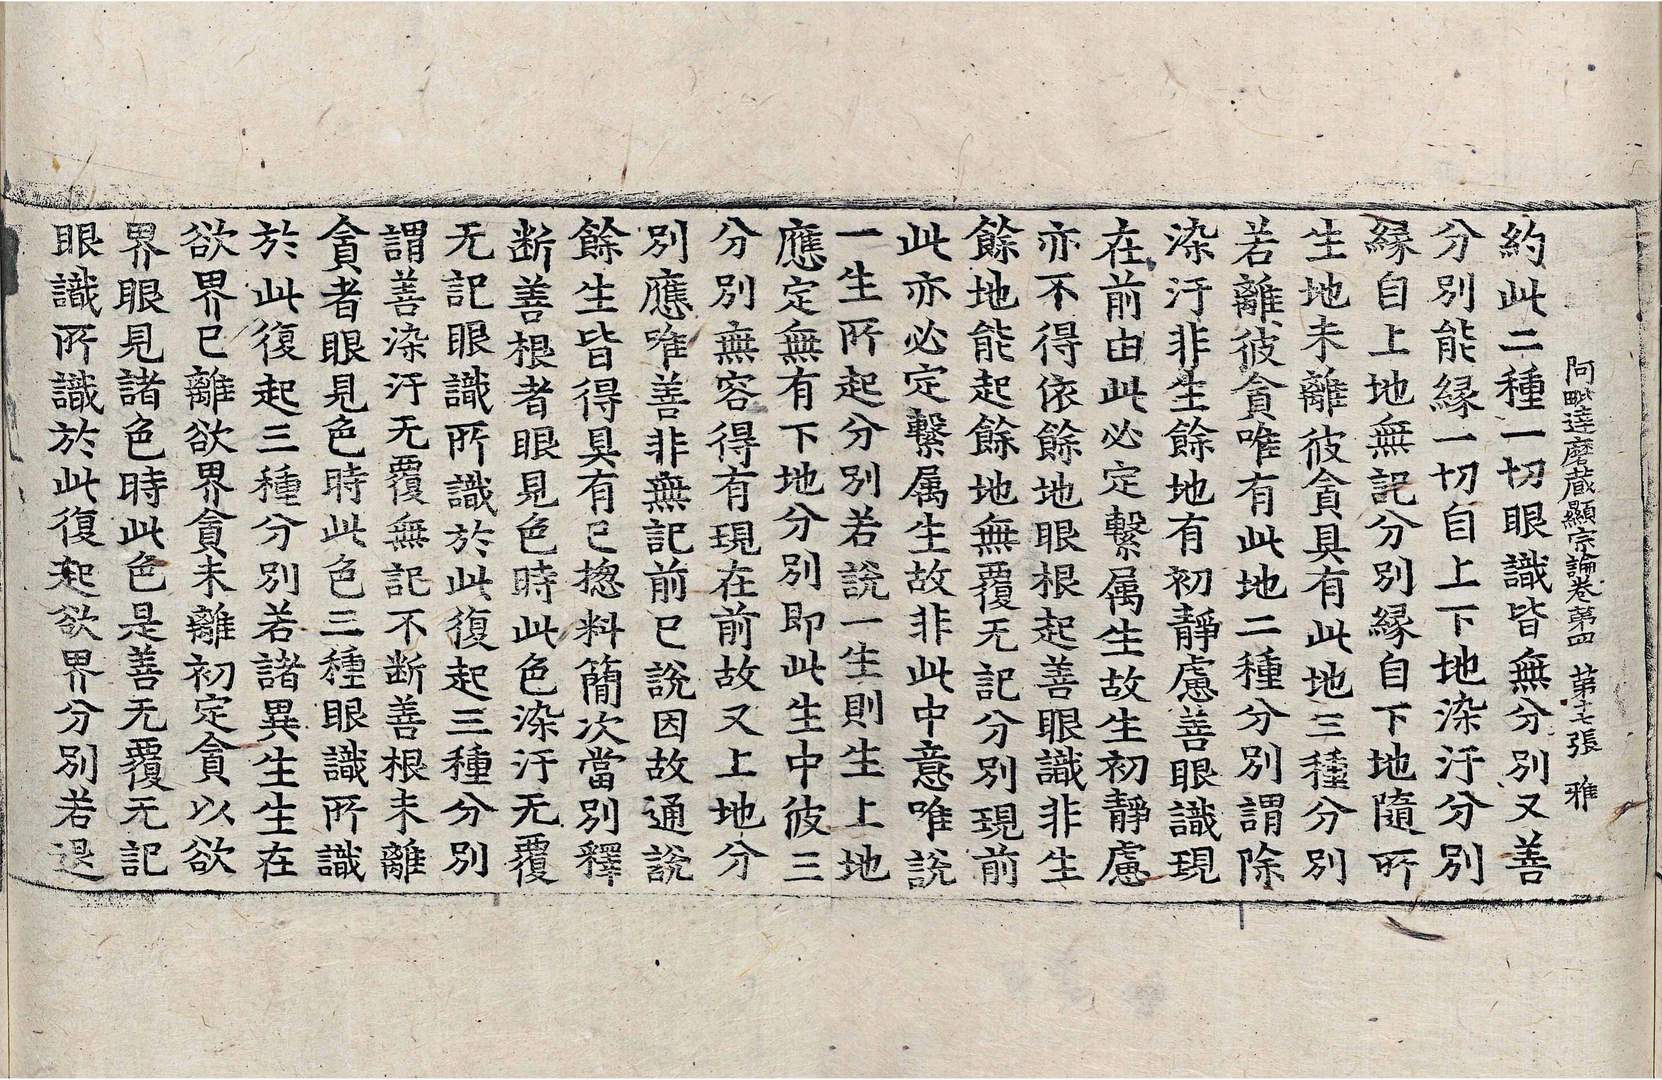 阿毗達磨藏顯宗論卷第四 第十七張 雅
約此二種一切眼識皆無分別又善
分別能緣一切自上下地染汙分別
緣自上地無記分別緣自下地隨所
生地未離彼貪具有此地三種分別
若離彼貪唯有此地二種分別謂除
染汙非生餘地有初靜慮善眼識現
在前由此必定繫属生故生初靜慮
亦不得依餘地眼根起善眼識非生
餘地能起餘地無覆无記分別現前
此亦必定繫属生故非此中意唯說
一生所起分別若說一生則生上地
應定無有下地分別即此生中彼三
分別無容得有現在前故又上地分
別應唯善非無記前已說因故通說
餘生皆得具有已揔料簡次當別釋
断善根者眼見色時此色染汙无覆
无記眼識所識於此復起三種分別
謂善染汙无覆無記不断善根未離
貪者眼見色時此色三種眼識所識
於此復起三種分別若諸異生生在
欲界已離欲界貪未離初定貪以欲
界眼見諸色時此色是善无覆无記
眼識所識於此復起欲界分別若退